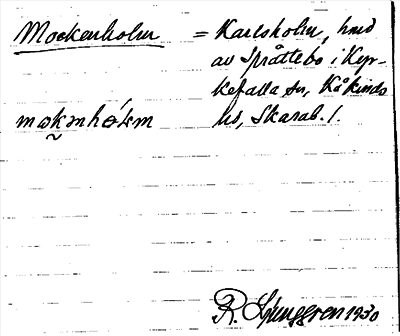 Mockenholm = Karlsholm, hmd
av Språttebo i Kyr-
kefalla sn, Kåkinds
mokmhólm hs, Skarab. l.
R. Ljunggren 1930